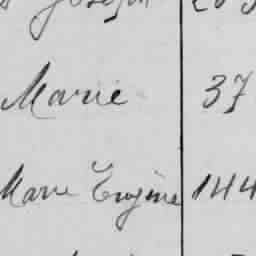 Joseph
Marie 37
Marie Eugénie 144